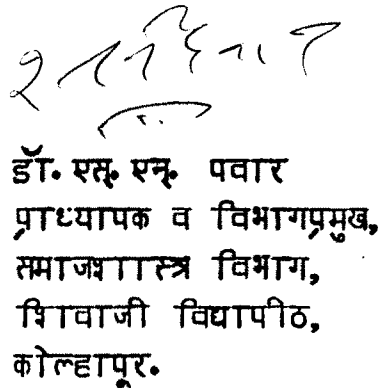 डॉ. एस्. एन्. पवार
प्राध्यापक व विभागप्रमुख,
समाजशास्त्र विभाग,
शिवाजी विद्यापीठ,
कोल्हापूर.